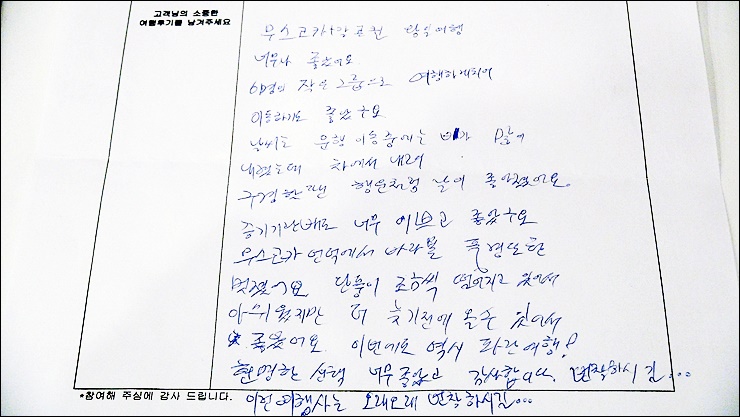 고객님의 소중한
여행후기를 남겨주세요
무스코카+강포권 당일여행
너무나 좋았어요
6명의 작은 그룹으로 여행하게되어
이동하기도 좋았구요
날씨도 운행 이동중에는 비가 많이
내렸는데 차에서 내려
구경할땐 행운처럼 날이 좋았었어요.
증기기관배도 너무 이쁘고 좋았구요
무스코카 언덕에서 바라볼 풍경또한
멋졌어요 단풍이 조금씩 떨어지고 있어서
아쉬웠지만 더 늦기전에 올수 있어서
좋았어요 이번에도 역시 파란여행!
현명한 선택 너무좋았고 감사합니다. 번창하시길...
*참여해 주심에 감사 드립니다.
이런 여행사는 오래오래 번창하시길...